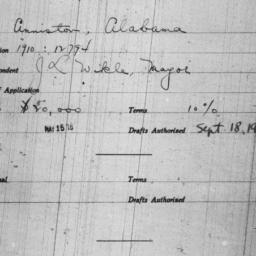 Anniston, Alabama
ion 1910: 12,794
ondent J L Wikle, Mayor
f Application
$20,000 Terms 10%
MAY 15 '15 Drafts Authorized Sept. 18, 19
al Terms
Drafts Authorized